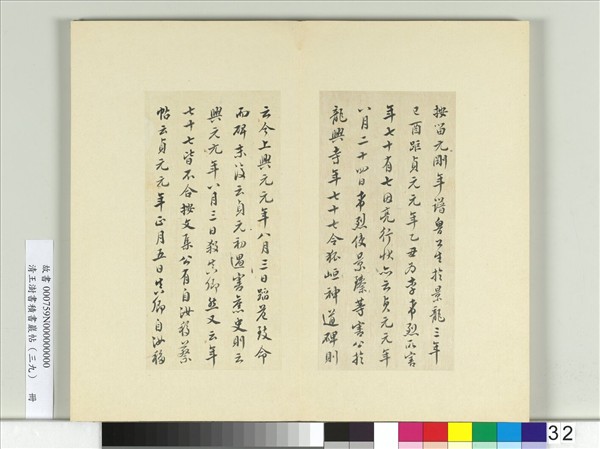 按留元剛年譜魯公生於景龍三年
己酉距貞元元年乙丑為李希烈所害
年七十有七因亮行狀亦云貞元元年
八月二十四日希烈使景臻等害公於
龍興寺年七十七令狐峘神道碑則
云今上興元元年八月三日蹈危致命
而碑末後云貞元初遇害舊史則云
興元元年八月三日殺真卿然又云年
七十七皆不合按文集公有自汝移蔡
帖云貞元元年正月五日真卿自汝移
故書 000759N000000000
清王澍書積書巖帖（三九） 冊
32